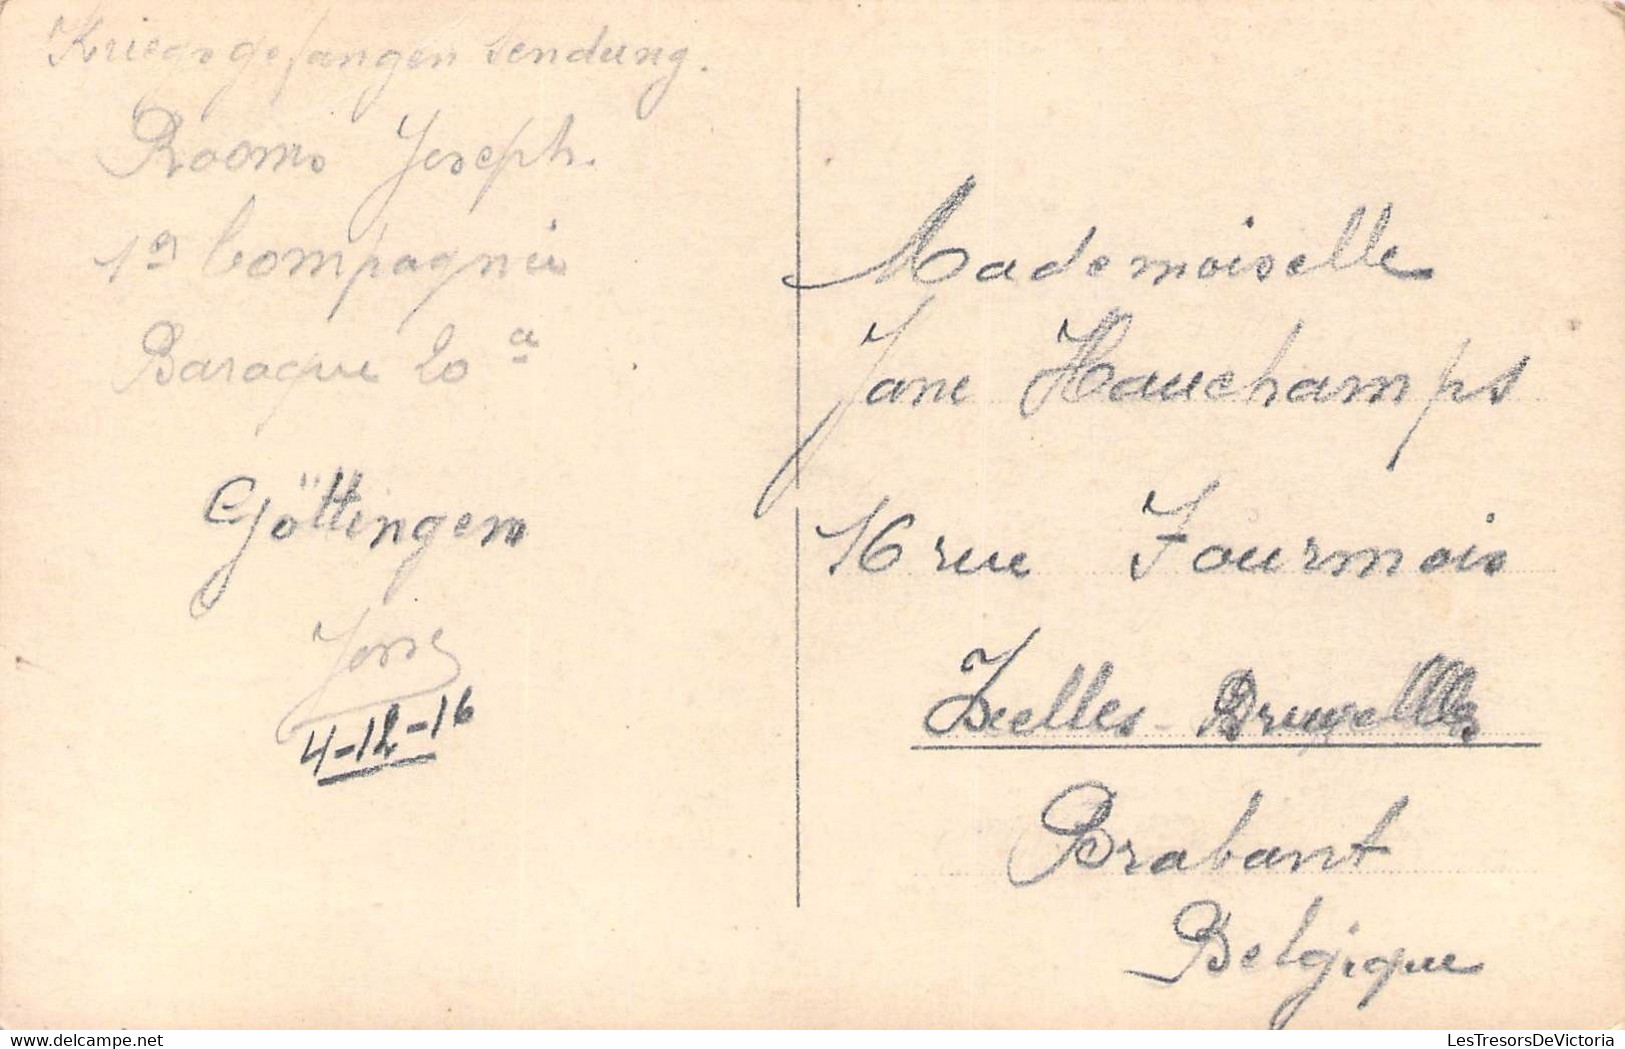 Kriegsgefangen Sendung.
Rooms Joseph.
1e Compagnie
Baraque 20 a
Göttingen
4-12-16
Mademoiselle
Jane Hauchamps
16 rue Fourmois
Ixelles - Bruxelles
Brabant
Belgique
LesTresorsDeVictoria.com